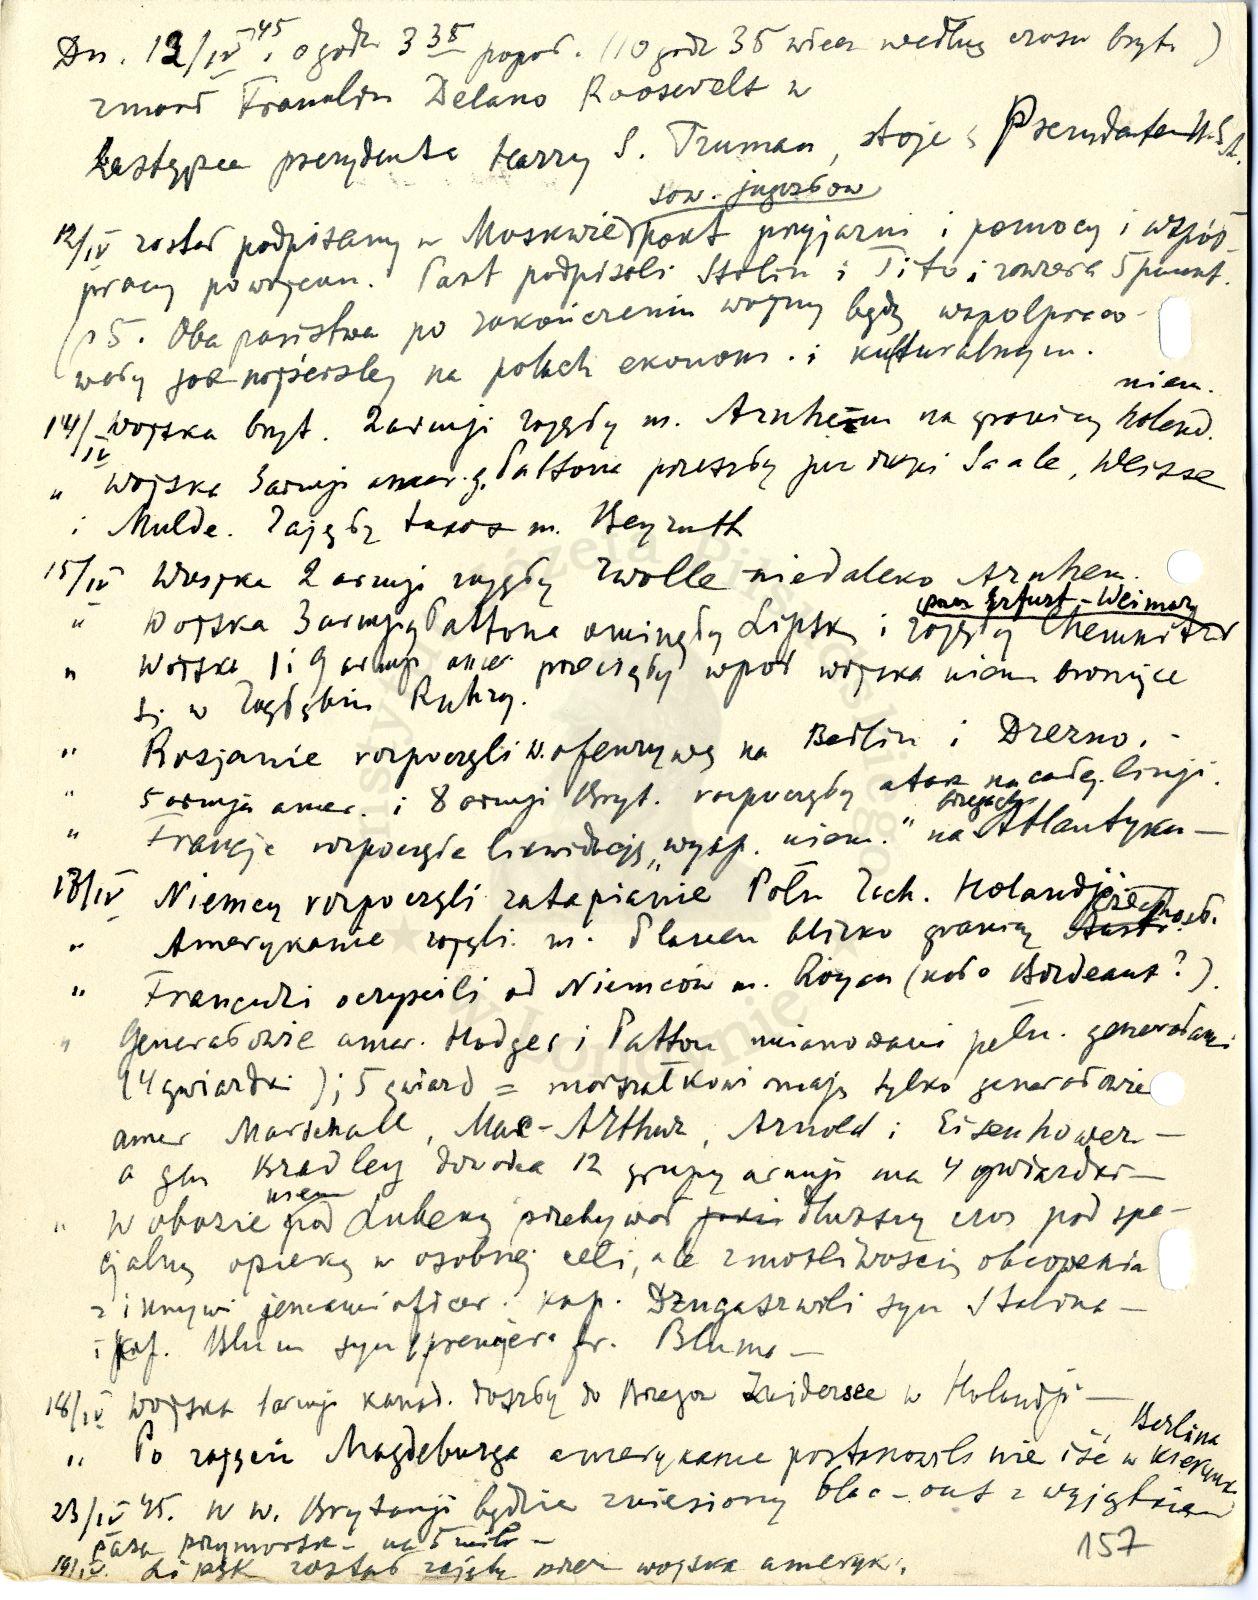 Dn. 12/IV '45, o godz. 3 35 popoł. (10 godz 35 wiecz według czasu bryt.)
zmarł Franclin Delano Roosevelt w
Zastępca prezydenta Harry S. Truman, staje się Prezydentem U.S.A.
sow. jugosłow
12/IV został podpisany w Moskwie pakt przyjazni i pomocy i współ-
pracy powojenn. Pakt podpisali Stalin i Tito i zawiera 5 punkt.
(p 5. Oba państwa po zakończeniu wojny będą wspolpraco-
wały jak najściślej na polach ekonom. i kulturalnym.
niem.
14/IV Wojska bryt. 2 armji zajęły m. Arnhem na granicy holend.
" Wojska 3 armji amer. g. Pattona przeszły już rzeki Saale, Weisse
i Mulde. Zajęły także m. Beyruth
15/IV Wojska 2 armji zajęły Zwolle niedaleko Arnhem.
oraz Erfurt - Weimar
" Wojska 3 armji g Pattona ominęły Lipsk i zajęły Chemnitz
" Wojska 1 i 9 armji amer przecięły wpół wojska niem broniące
się w Zagłębiu Ruhry.
" Rosjanie rozpoczęli w. ofenzywę na Berlin i Drezno. -
" 5 armja amer. i 8 armji Bryt. rozpoczęły atak na całej linji.
brzegach
" Francja rozpoczęła likwidację „wysp. niem." na Atlantyku —
17/IV Niemcy rozpoczęli zatapianie Półn Zach. Holandji
czechosł.
" Amerykanie zajęli m. Plauen blizko granicy Austr.
" Francuzi oczyścili od Niemców m. Royan (koło Bordeaux?).
" Generałowie amer. Hodges i Patton mianowani pełn. generałami
(4 gwiazdki); 5 gwiazd = marszałkowi mają tylko generałowie
amer Marschall, Mac-Arthur, Arnold i Eisenhower —
a gen Bradley dowódca 12 grupy armji ma 4 gwiazdki —
niem
" W obozie pod Lubeką przebywał jakiś dłuższy czas pod spe-
cjalną opieką w osobnej celi, ale z możliwością obcowania
z innymi jeńcami oficer. kap. Dzugaszwili syn Stalina —
i por. Blum syn premjera fr. Bluma —
18/IV Wojska 1 armji kanad. doszły do brzegu Zuidersee w Holandji —
" Po zajęciu Magdeburga amerykanie postanowili nie iść w kierunku
Berlina
23/IV 45. W W. Brytanji będzie zniesiony blac-out z wyjątkiem
pasa przymorsk - na 5 mil —
19/IV. Lipsk został zajęty przez wojska ameryk.
157